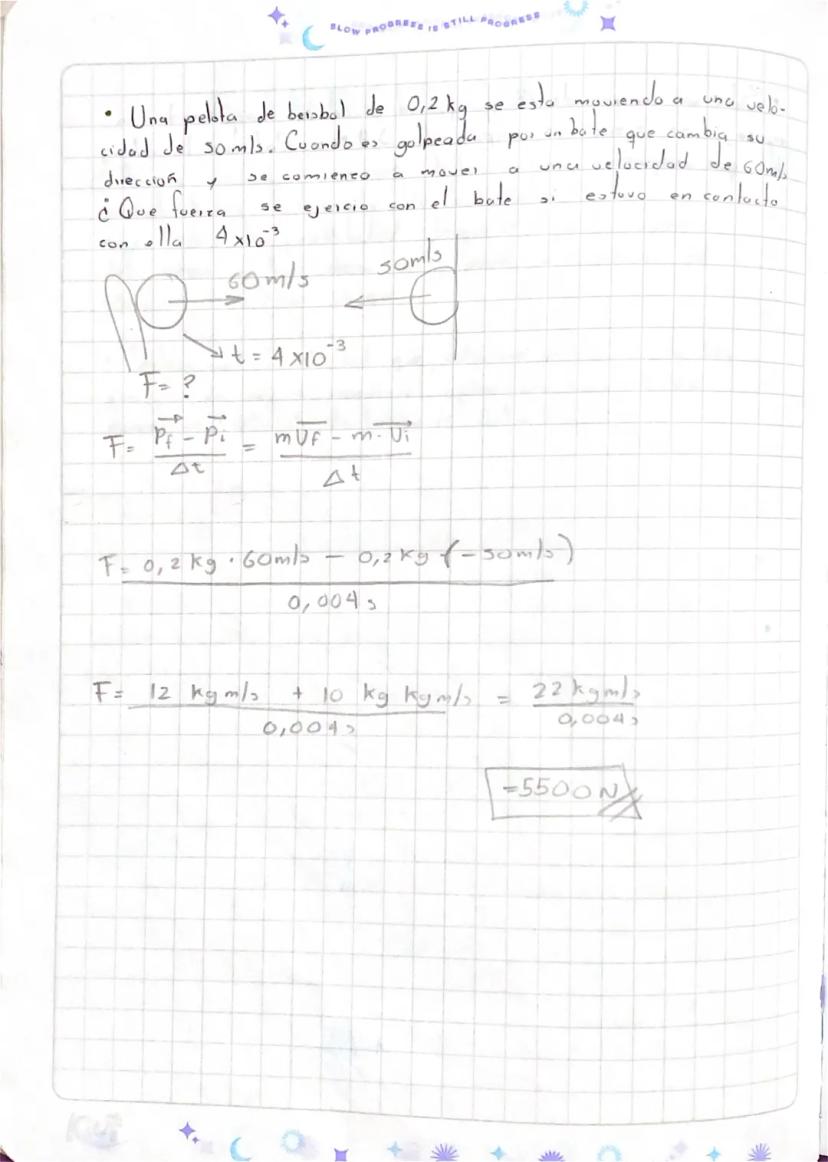 SLOW PROGRESS IS STILL PROGRESS
• Una pelota de beisbol de 0,2 kg se esta moviendo a una velo-
cidad de 50 m/s. Cuando es golpeada por un bate que cambia su
dirección y se comienza a mover a una velocidad de 60m/s
¿Que fuerza se ejercio con el bate si estuvo en contacto
con ella 4x10⁻³
60m/s 50m/s
t = 4x10⁻³
F= ?
F= (p⃗f - p⃗i)/Δt = (mv⃗f - m·v⃗i)/Δt
F= 0,2 kg · 60m/s - 0,2 kg (-50m/s)
0,004 s
F= 12 kg m/s + 10 kg kg m/s = 22 kg m/s
0,004 s 0,004 s
=5500 N